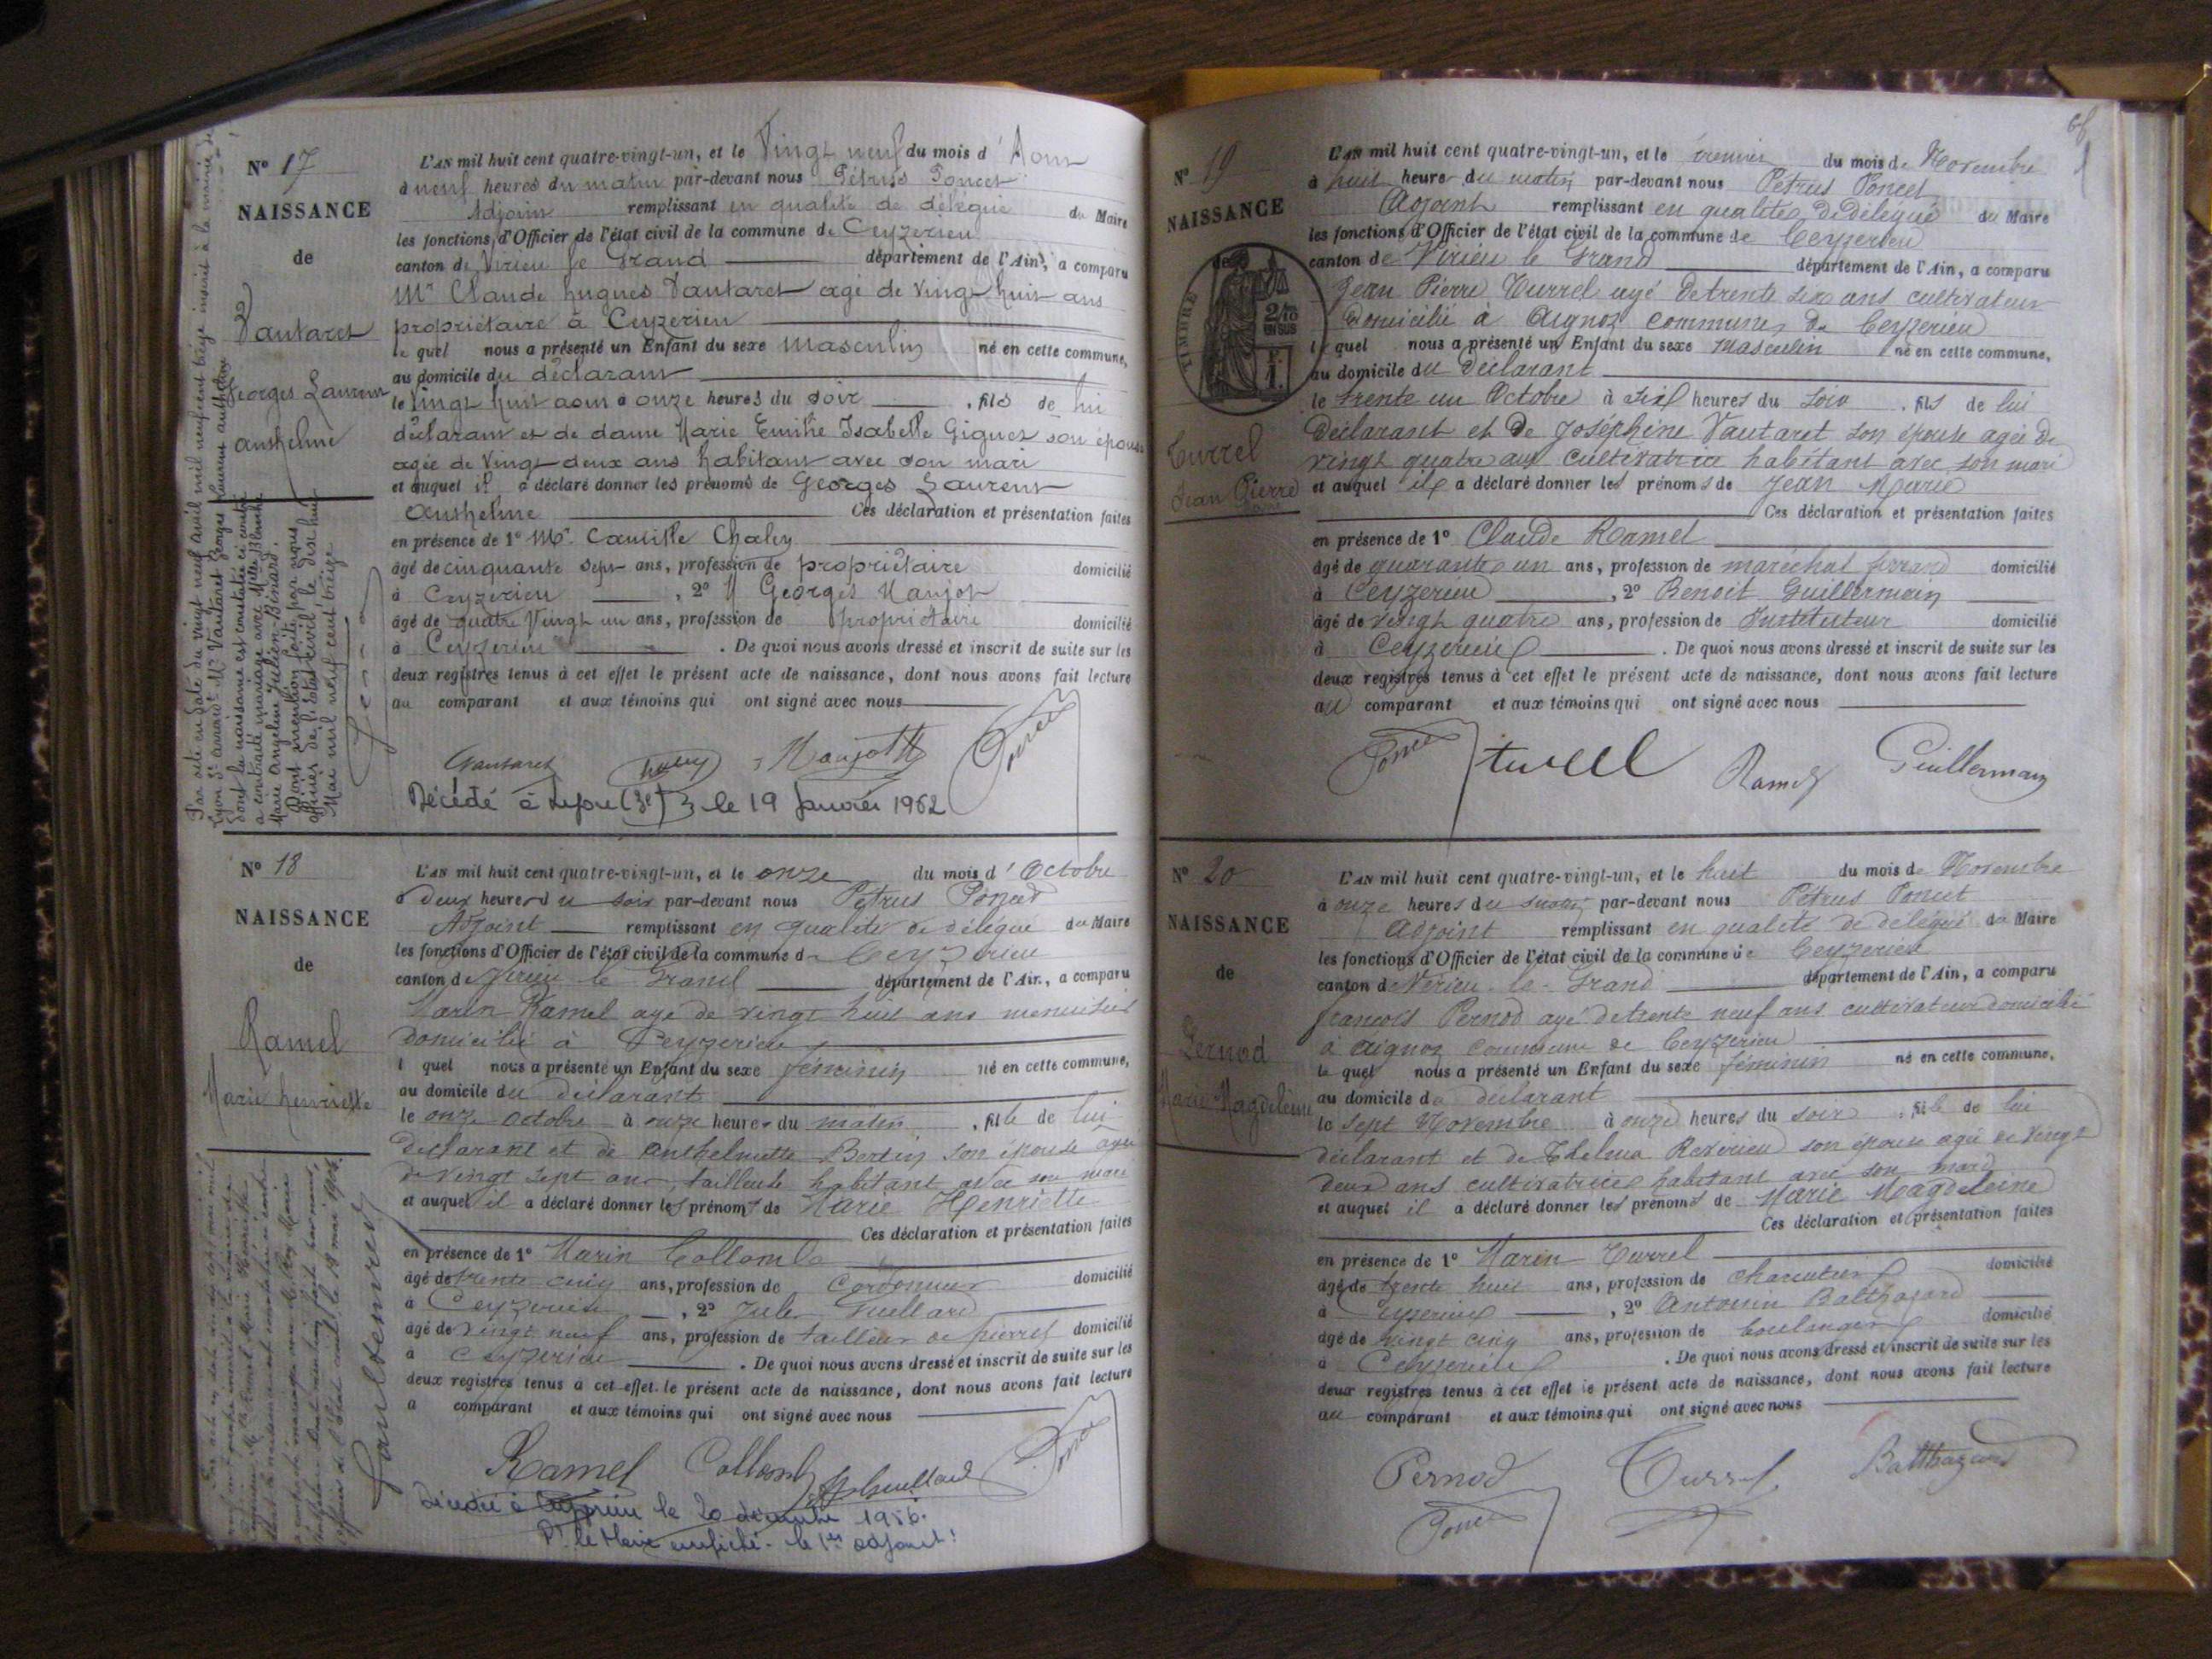 N° 17
NAISSANCE
de
Vautaret
Georges Laurent
Anthelme
L'AN mil huit cent quatre-vingt-un, et le Vingt neuf du mois d'Aout
à neuf heures du matin par-devant nous Pétrus Poncet
Adjoint remplissant en qualité de délégué du Maire
les fonctions d'Officier de l'état civil de la commune de Ceyzerieu
canton de Virieu le Grand département de l'Ain, a comparu
Mr Claude hugues Vautaret agé de vingt huit ans
propriétaire à Ceyzerieu
lequel nous a présenté un Enfant du sexe masculin né en cette commune,
au domicile du déclarant
le vingt huit aout à onze heures du soir, fils de lui
déclarant et de dame Marie Emilie Isabelle Giguet son épouse
agée de vingt-deux ans habitant avec son mari
et auquel il a déclaré donner les prénoms de Georges Laurent
Anthelme Ces déclaration et présentation faites
en présence de 1° Mr Camille Chaley
âgé de cinquante sept ans, profession de propriétaire domicilié
à Ceyzerieu, 2° M Georges Maujot
âgé de quatre Vingt un ans, profession de propriétaire domicilié
à Ceyzerieu. De quoi nous avons dressé et inscrit de suite sur les
deux registres tenus à cet effet le présent acte de naissance, dont nous avons fait lecture
au comparant et aux témoins qui ont signé avec nous
Vautaret Chaley Maujot Poncet
Décédé à Lyon (3e) le 19 Janvier 1962
Par acte en date du vingt neuf avril mil neuf cent treize inscrit à la mairie de
Lyon 3e arrondt Mr Vautaret Georges Laurent Anthelme
dont la naissance est constatée ci contre
a contracté mariage avec Melle Blanche
Marie Angeline Julien-Binard.
Dont mention faite par nous
officier de l'état civil le dix huit
Mai mil neuf cent treize
N° 18
NAISSANCE
de
Ramel
Marie henriette
L'AN mil huit cent quatre-vingt-un, et le onze du mois d'Octobre
à deux heures du soir par-devant nous Pétrus Poncet
Adjoint remplissant en qualité de délégué du Maire
les fonctions d'Officier de l'état civil de la commune de Ceyzerieu
canton de Virieu le Grand département de l'Ain, a comparu
Marin Ramel agé de vingt huit ans menuisier
domicilié à Ceyzerieu
l quel nous a présenté un Enfant du sexe féminin né en cette commune,
au domicile du déclarant
le onze octobre à onze heures du matin, fille de lui
déclarant et de Anthelmette Bertin son épouse agée
de vingt sept ans, tailleuse habitant avec son mari
et auquel il a déclaré donner les prénoms de Marie Henriette
Ces déclaration et présentation faites
en présence de 1° Marin Collomb
âgé de trente cinq ans, profession de Cordonnier domicilié
à Ceyzerieu, 2° Jules Guillard
âgé de vingt neuf ans, profession de tailleur de pierres domicilié
à Ceyzerieu. De quoi nous avons dressé et inscrit de suite sur les
deux registres tenus à cet effet le présent acte de naissance, dont nous avons fait lecture
a comparant et aux témoins qui ont signé avec nous
Ramel Collomb Guillard Poncet
Décédée à Ceyzerieu le 20 décembre 1956.
Pr le Maire empêché - le 1er adjoint:
N° 19
NAISSANCE
de
TIMBRE
2/10
EN SUS
Turrel
Jean Pierre
L'AN mil huit cent quatre-vingt-un, et le premier du mois de Novembre
à huit heures du matin par-devant nous Pétrus Poncet
Adjoint remplissant en qualité de délégué du Maire
les fonctions d'Officier de l'état civil de la commune de Ceyzerieu
canton de Virieu le Grand département de l'Ain, a comparu
Jean Pierre Turrel agé de trente six ans cultivateur
domicilié à Aignoz commune de Ceyzerieu
lequel nous a présenté un Enfant du sexe Masculin né en cette commune,
au domicile du déclarant
le trente un Octobre à six heures du soir, fils de lui
déclarant et de Joséphine Vautaret son épouse agée de
vingt quatre ans cultivatrice habitant avec son mari
et auquel il a déclaré donner les prénoms de Jean Marie
Ces déclaration et présentation faites
en présence de 1° Claude Ramel
âgé de quarante un ans, profession de maréchal ferrand domicilié
à Ceyzerieu, 2° Benoit Guillermain
âgé de vingt quatre ans, profession de Instituteur domicilié
à Ceyzerieu. De quoi nous avons dressé et inscrit de suite sur les
deux registres tenus à cet effet le présent acte de naissance, dont nous avons fait lecture
au comparant et aux témoins qui ont signé avec nous
Poncet turel Ramel Guillermain
N° 20
NAISSANCE
de
Pernod
Marie Magdeleine
L'AN mil huit cent quatre-vingt-un, et le huit du mois de Novembre
à onze heures du matin par-devant nous Pétrus Poncet
Adjoint remplissant en qualité de délégué du Maire
les fonctions d'Officier de l'état civil de la commune de Ceyzerieu
canton de Virieu-le-Grand département de l'Ain, a comparu
françois Pernod agé de trente neuf ans cultivateur domicilié
à Aignoz commune de Ceyzerieu
lequel nous a présenté un Enfant du sexe féminin né en cette commune,
au domicile du déclarant
le sept Novembre à onze heures du soir, fille de lui
déclarant et de Thelma Reverieu son épouse agée de vingt
deux ans cultivatrice habitant avec son mari
et auquel il a déclaré donner les prénoms de Marie Magdeleine
Ces déclaration et présentation faites
en présence de 1° Marin Turrel domicilié
âgé de trente huit ans, profession de charcutier
à Ceyzerieu, 2° Antonin Balthazard
âgé de vingt cinq ans, profession de boulanger domicilié
à Ceyzerieu. De quoi nous avons dressé et inscrit de suite sur les
deux registres tenus à cet effet le présent acte de naissance, dont nous avons fait lecture
au comparant et aux témoins qui ont signé avec nous
Pernod Turrel Balthazard
Poncet